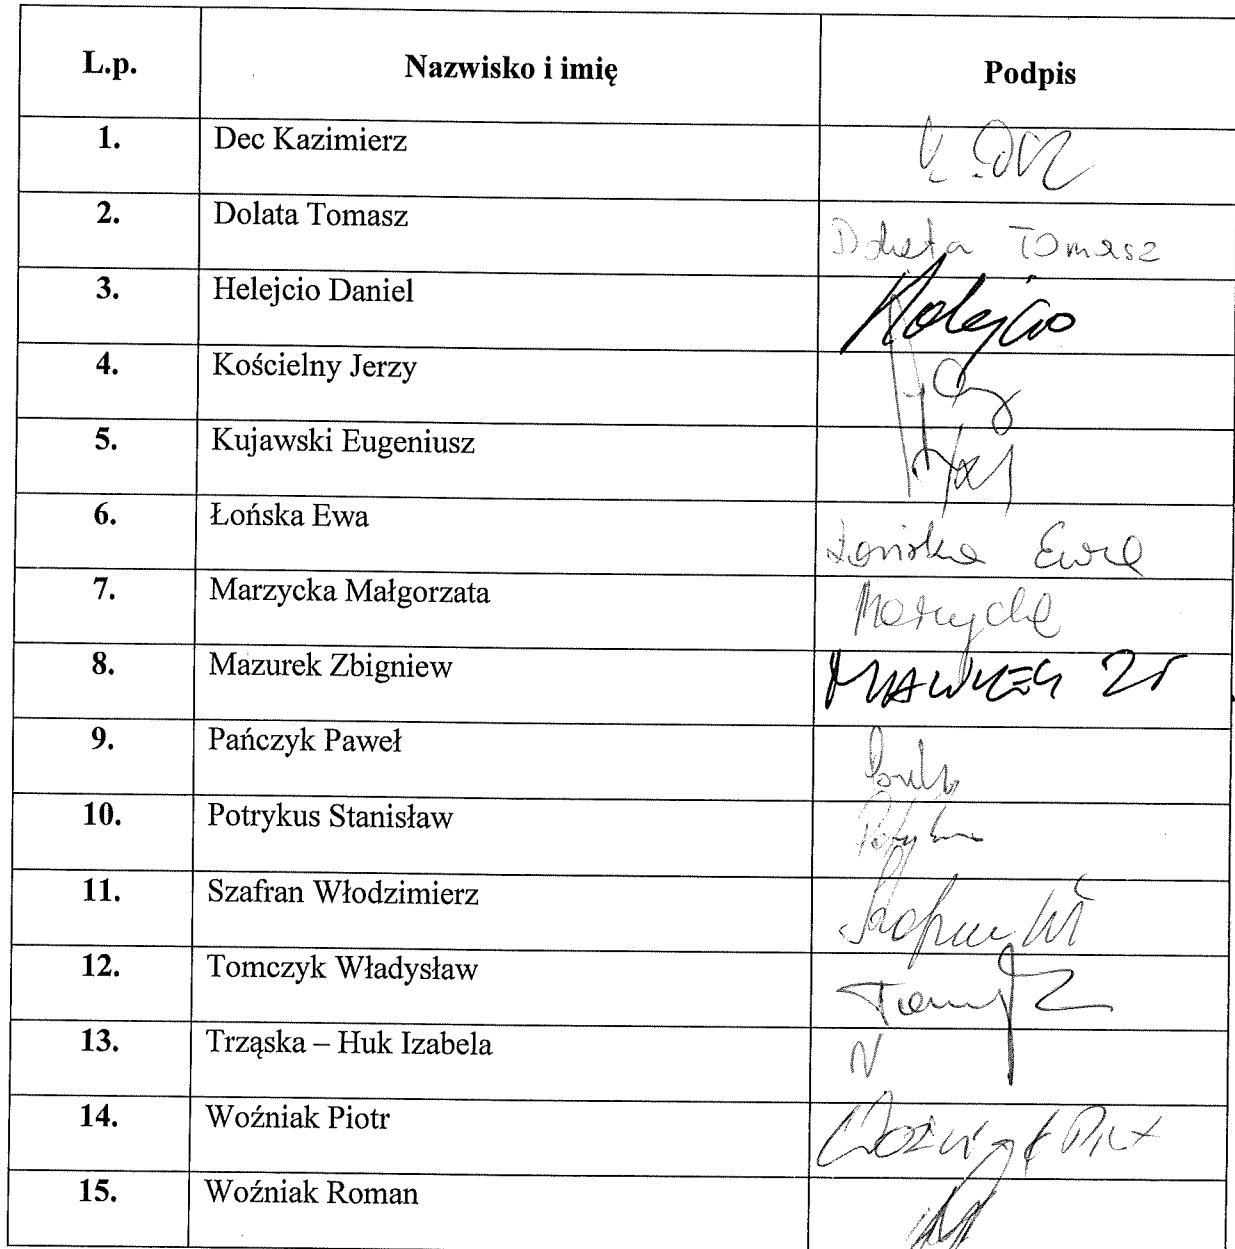 L.p. Nazwisko i imię Podpis
1. Dec Kazimierz
2. Dolata Tomasz Dolata Tomasz
3. Helejcio Daniel Helejcio
4. Kościelny Jerzy
5. Kujawski Eugeniusz
6. Łońska Ewa Łońska Ewa
7. Marzycka Małgorzata
8. Mazurek Zbigniew
9. Pańczyk Paweł
10. Potrykus Stanisław
11. Szafran Włodzimierz
12. Tomczyk Władysław
13. Trząska – Huk Izabela N
14. Woźniak Piotr
15. Woźniak Roman